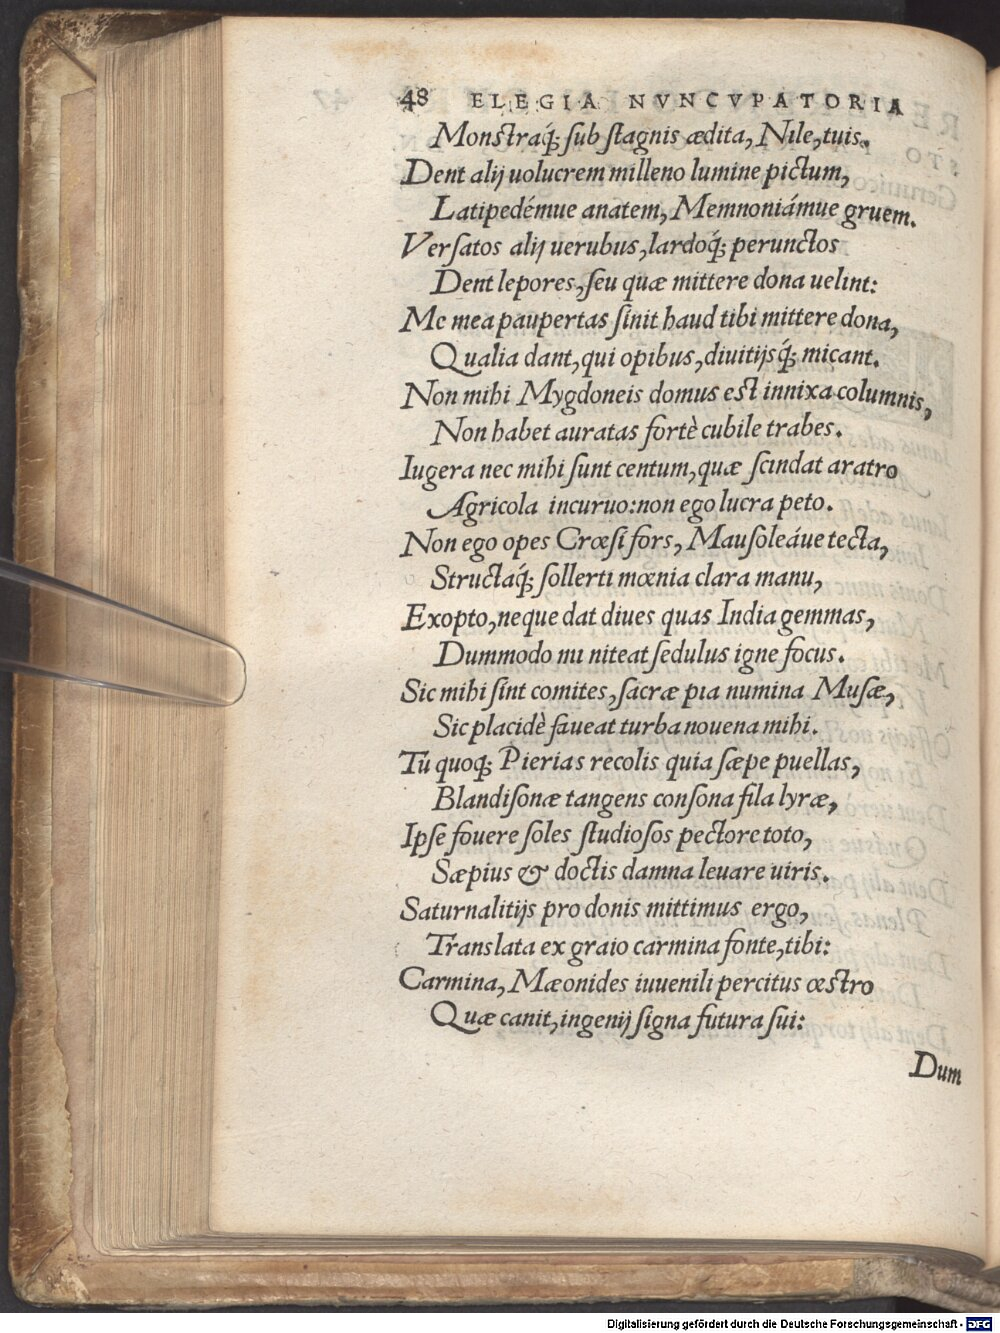 48 ELEGIA NVNCVPATORIA
Monstraq́; sub stagnis ædita, Nile, tuis.
Dent alij uolucrem milleno lumine pictum,
Latipedémue anatem, Memnoniámue gruem.
Versatos alij uerubus, lardoq́; perunctos
Dent lepores, seu quæ mittere dona uelint:
Me mea paupertas sinit haud tibi mittere dona,
Qualia dant, qui opibus, diuitijsq́; micant.
Non mihi Mygdoneis domus est innixa columnis,
Non habet auratas fortè cubile trabes.
Iugera nec mihi sunt centum, quæ scindat aratro
Agricola incuruo: non ego lucra peto.
Non ego opes Crœsi fors, Mausoleáue tecta,
Structaq́; sollerti mœnia clara manu,
Exopto, neque dat diues quas India gemmas,
Dummodo mi niteat sedulus igne focus.
Sic mihi sint comites, sacræ pia numina Musæ,
Sic placidè faueat turba nouena mihi.
Tu quoq; Pierias recolis quia sæpe puellas,
Blandisonæ tangens consona fila lyræ,
Ipse fouere soles studiosos pectore toto,
Sæpius & doctis damna leuare uiris.
Saturnalitijs pro donis mittimus ergo,
Translata ex graio carmina fonte, tibi:
Carmina, Mæonides iuuenili percitus œstro
Quæ canit, ingenij signa futura sui:
Dum
Digitalisierung gefördert durch die Deutsche Forschungsgemeinschaft - DFG